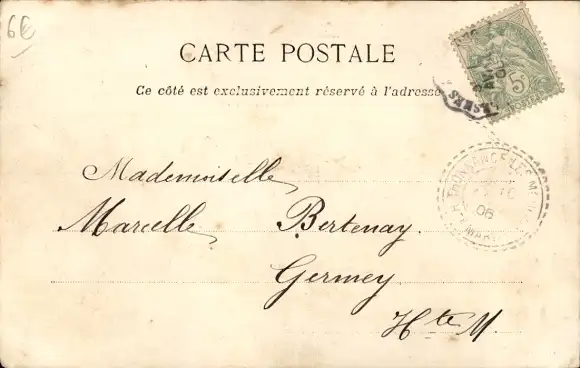 6€
CARTE POSTALE
Ce côté est exclusivement réservé à l'adresse
5
Mademoiselle
Marcelle Bertenay.
Germey
Hte M.
06